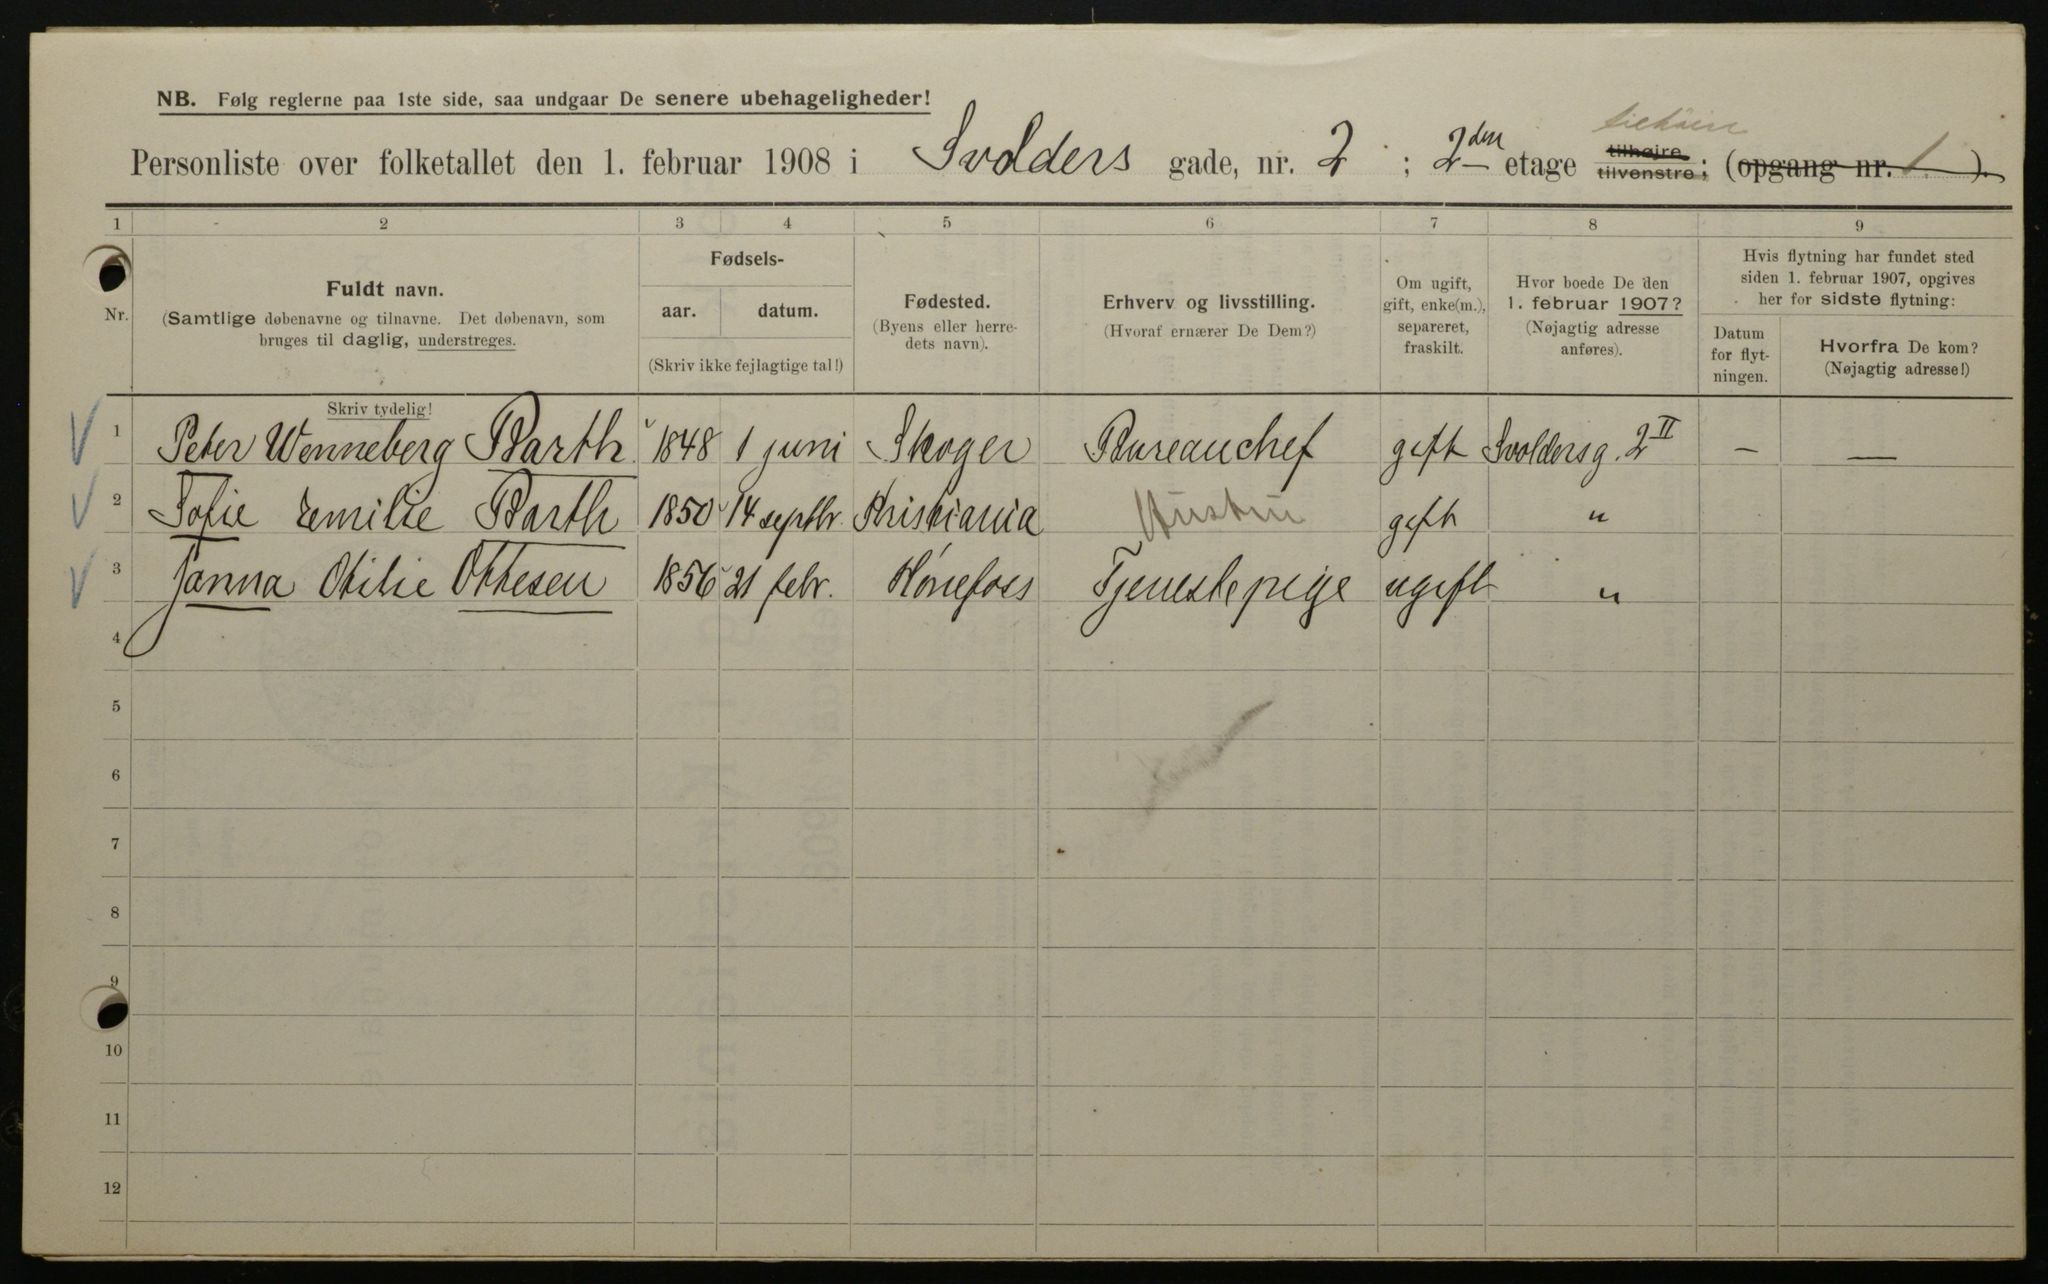 NB. Følg reglerne paa 1ste side, saa undgaar De senere ubehageligheder!
Personliste over folketallet den 1. februar 1908 i Svolders gade, nr. 2 ; 2den etage tilhøjre tilvenstre; (opgang nr. 1.).
1 2 3 4 5 6 7 8 9
Nr.
Fuldt navn.
(Samtlige døbenavne og tilnavne. Det døbenavn, som
bruges til daglig, understreges.
Skriv tydelig!
Fødsels-
aar. datum.
(Skriv ikke fejlagtige tal!)
Fødested.
(Byens eller herre-
dets navn).
Erhverv og livsstilling.
(Hvoraf ernærer De Dem?)
Om ugift,
gift, enke(m.),
separeret,
fraskilt.
Hvor boede De den
1. februar 1907?
(Nøjagtig adresse
anføres).
Hvis flytning har fundet sted
siden 1. februar 1907, opgives
her for sidste flytning:
Datum
for flyt-
ningen.
Hvorfra De kom?
(Nøjagtig adresse!)
1 Peter Wenneberg Barth 1848 1 juni Skoger Bureauchef gift Svoldersg. 2 II — —
2 Sofie Emilie Barth 1850 14 septbr. Kristiania Hustru gift "
3 Janna Otilie Ottesen 1856 21 febr. Hønefoss Tjenestepige ugift "
4
5
6
7
8
9
10
11
12